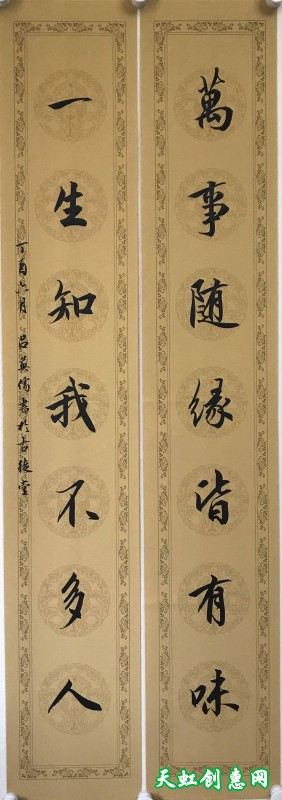 萬事随緣皆有味
一生知我不多人
丁酉六月 吕英儒書於古緣堂
天虹创惠网